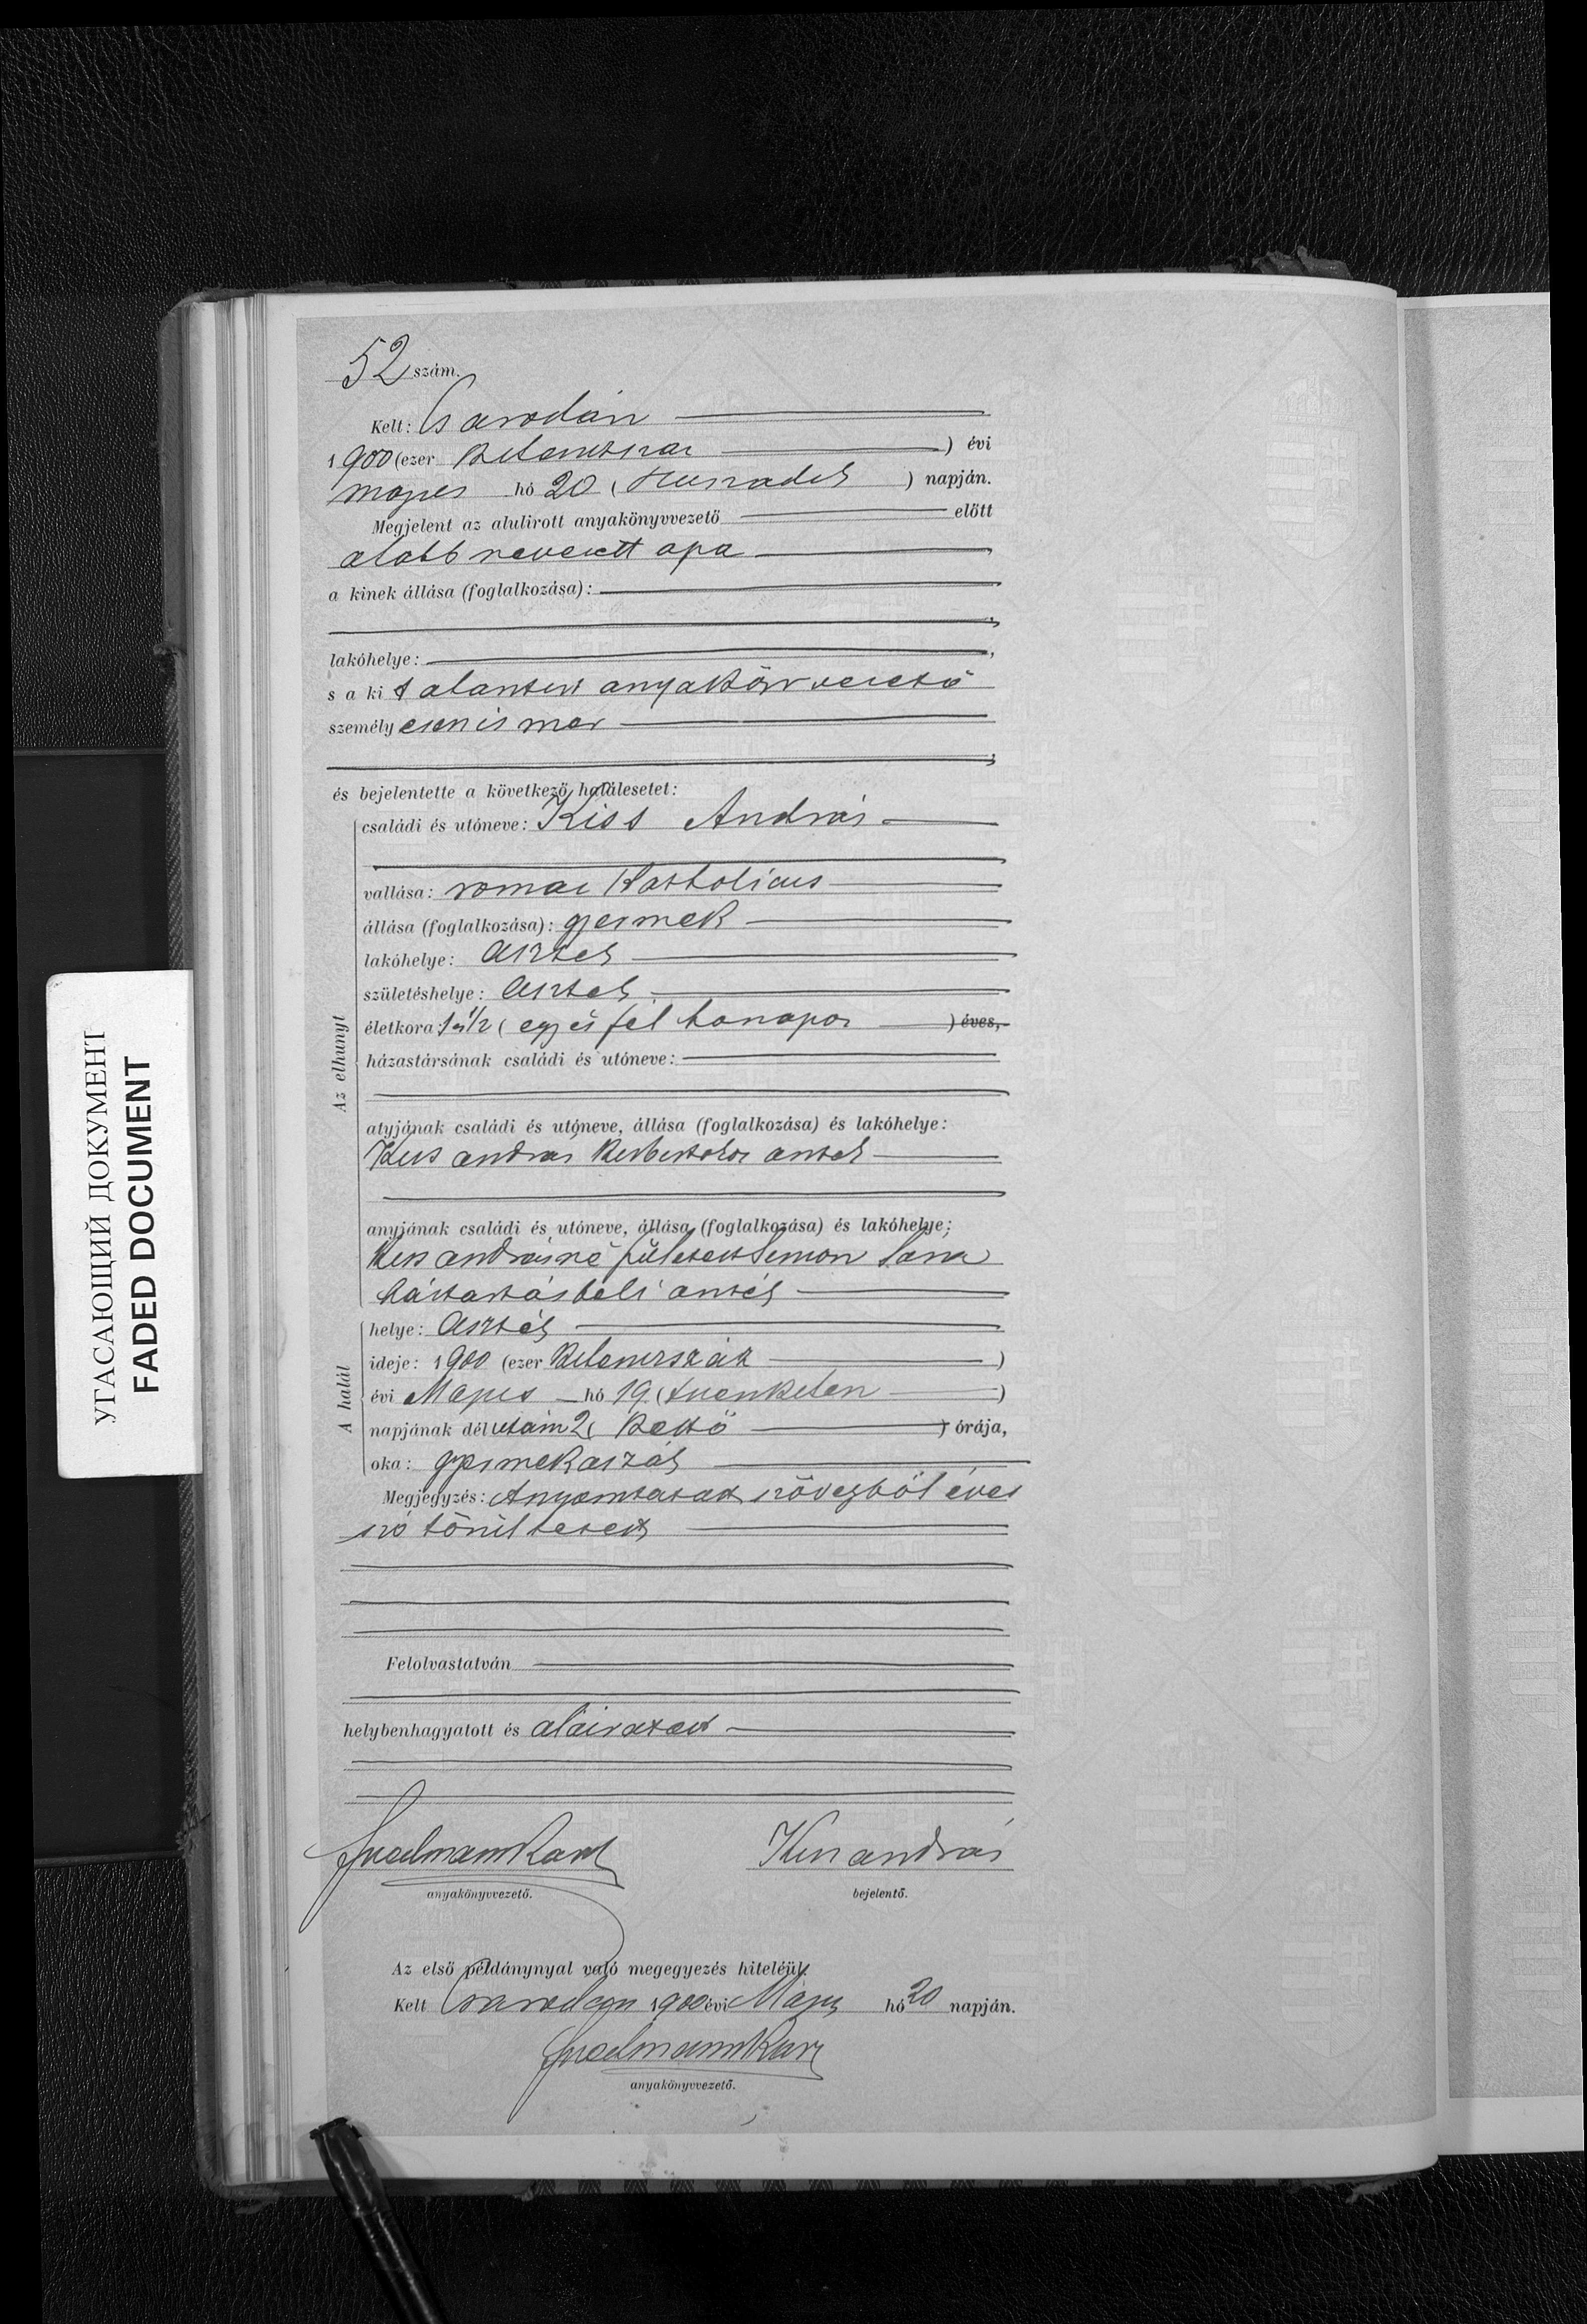 52 szám.
Kelt: Csarodán
1900 (ezer kilenczszáz) évi
majus hó 20 (Huszadik) napján.
Megjelent az alulirott anyakönyvvezető előtt
alább nevezett apa
a kinek állása (foglalkozása):
lakóhelye:
s a ki t alantirt anyakönyvvezető
személyesen ismer
és bejelentette a következő halálesetet:
Az elhunyt
családi és utóneve: Kiss András
vallása: romai Katholicus
állása (foglalkozása): gyermek
lakóhelye: Asztély
születéshelye: Asztély
életkora: 1 és 1/2 (egy és fél honapos) éves,
házastársának családi és utóneve:
atyjának családi és utóneve, állása (foglalkozása) és lakóhelye:
Kiss András asztély
anyjának családi és utóneve, állása (foglalkozása) és lakóhelye:
Kiss Andrásné született Simon
háztartásbeli asztély
A halál
helye: Asztély
ideje: 1900 (ezer kilenczszáz)
évi Majus hó 19 (tizenkilencz)
napjának délután 2 (Kettő) órája,
oka: gyermekaszály
Megjegyzés: A nyomtatott szövegből éves
szó töröltetett
Felolvastatván
helybenhagyatott és aláiratott
anyakönyvvezető.
Kiss András
bejelentő.
Az első példánynyal való megegyezés hiteléül.
Kelt Csarodán 1900 évi Május hó 20 napján.
anyakönyvvezető.
УГАСАЮЩИЙ ДОКУМЕНТ
FADED DOCUMENT